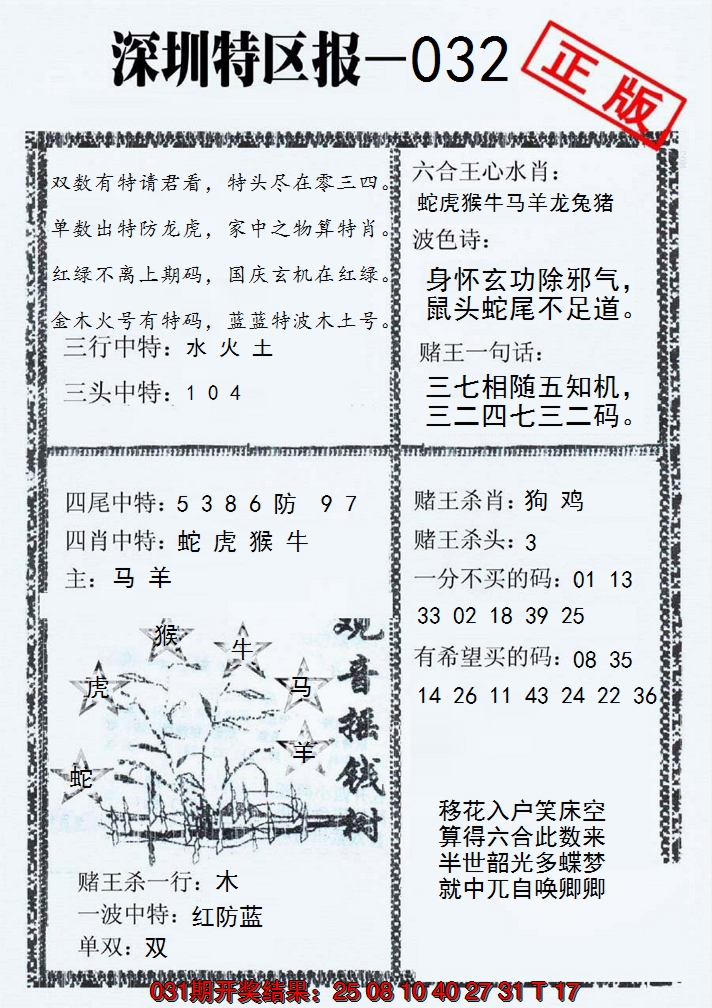 深圳特区报—032
正版
双数有特请君看，特头尽在零三四。
单数出特防龙虎，家中之物算特肖。
红绿不离上期码，国庆玄机在红绿。
金木火号有特码，蓝蓝特波木土号。
三行中特：水 火 土
三头中特：1 0 4
六合王心水肖：
蛇虎猴牛马羊龙兔猪
波色诗：
身怀玄功除邪气，
鼠头蛇尾不足道。
赌王一句话：
三七相随五知机，
三二四七三二码。
四尾中特：5 3 8 6 防 9 7
四肖中特：蛇 虎 猴 牛
主：马 羊
猴
牛
虎
马
羊
蛇
观音摇钱树
赌王杀一行：木
一波中特：红防蓝
单双：双
赌王杀肖：狗 鸡
赌王杀头：3
一分不买的码：01 13
33 02 18 39 25
有希望买的码：08 35
14 26 11 43 24 22 36
移花入户笑床空
算得六合此数来
半世韶光多蝶梦
就中兀自唤卿卿
031期开奖结果：25 08 10 40 27 31 T 17